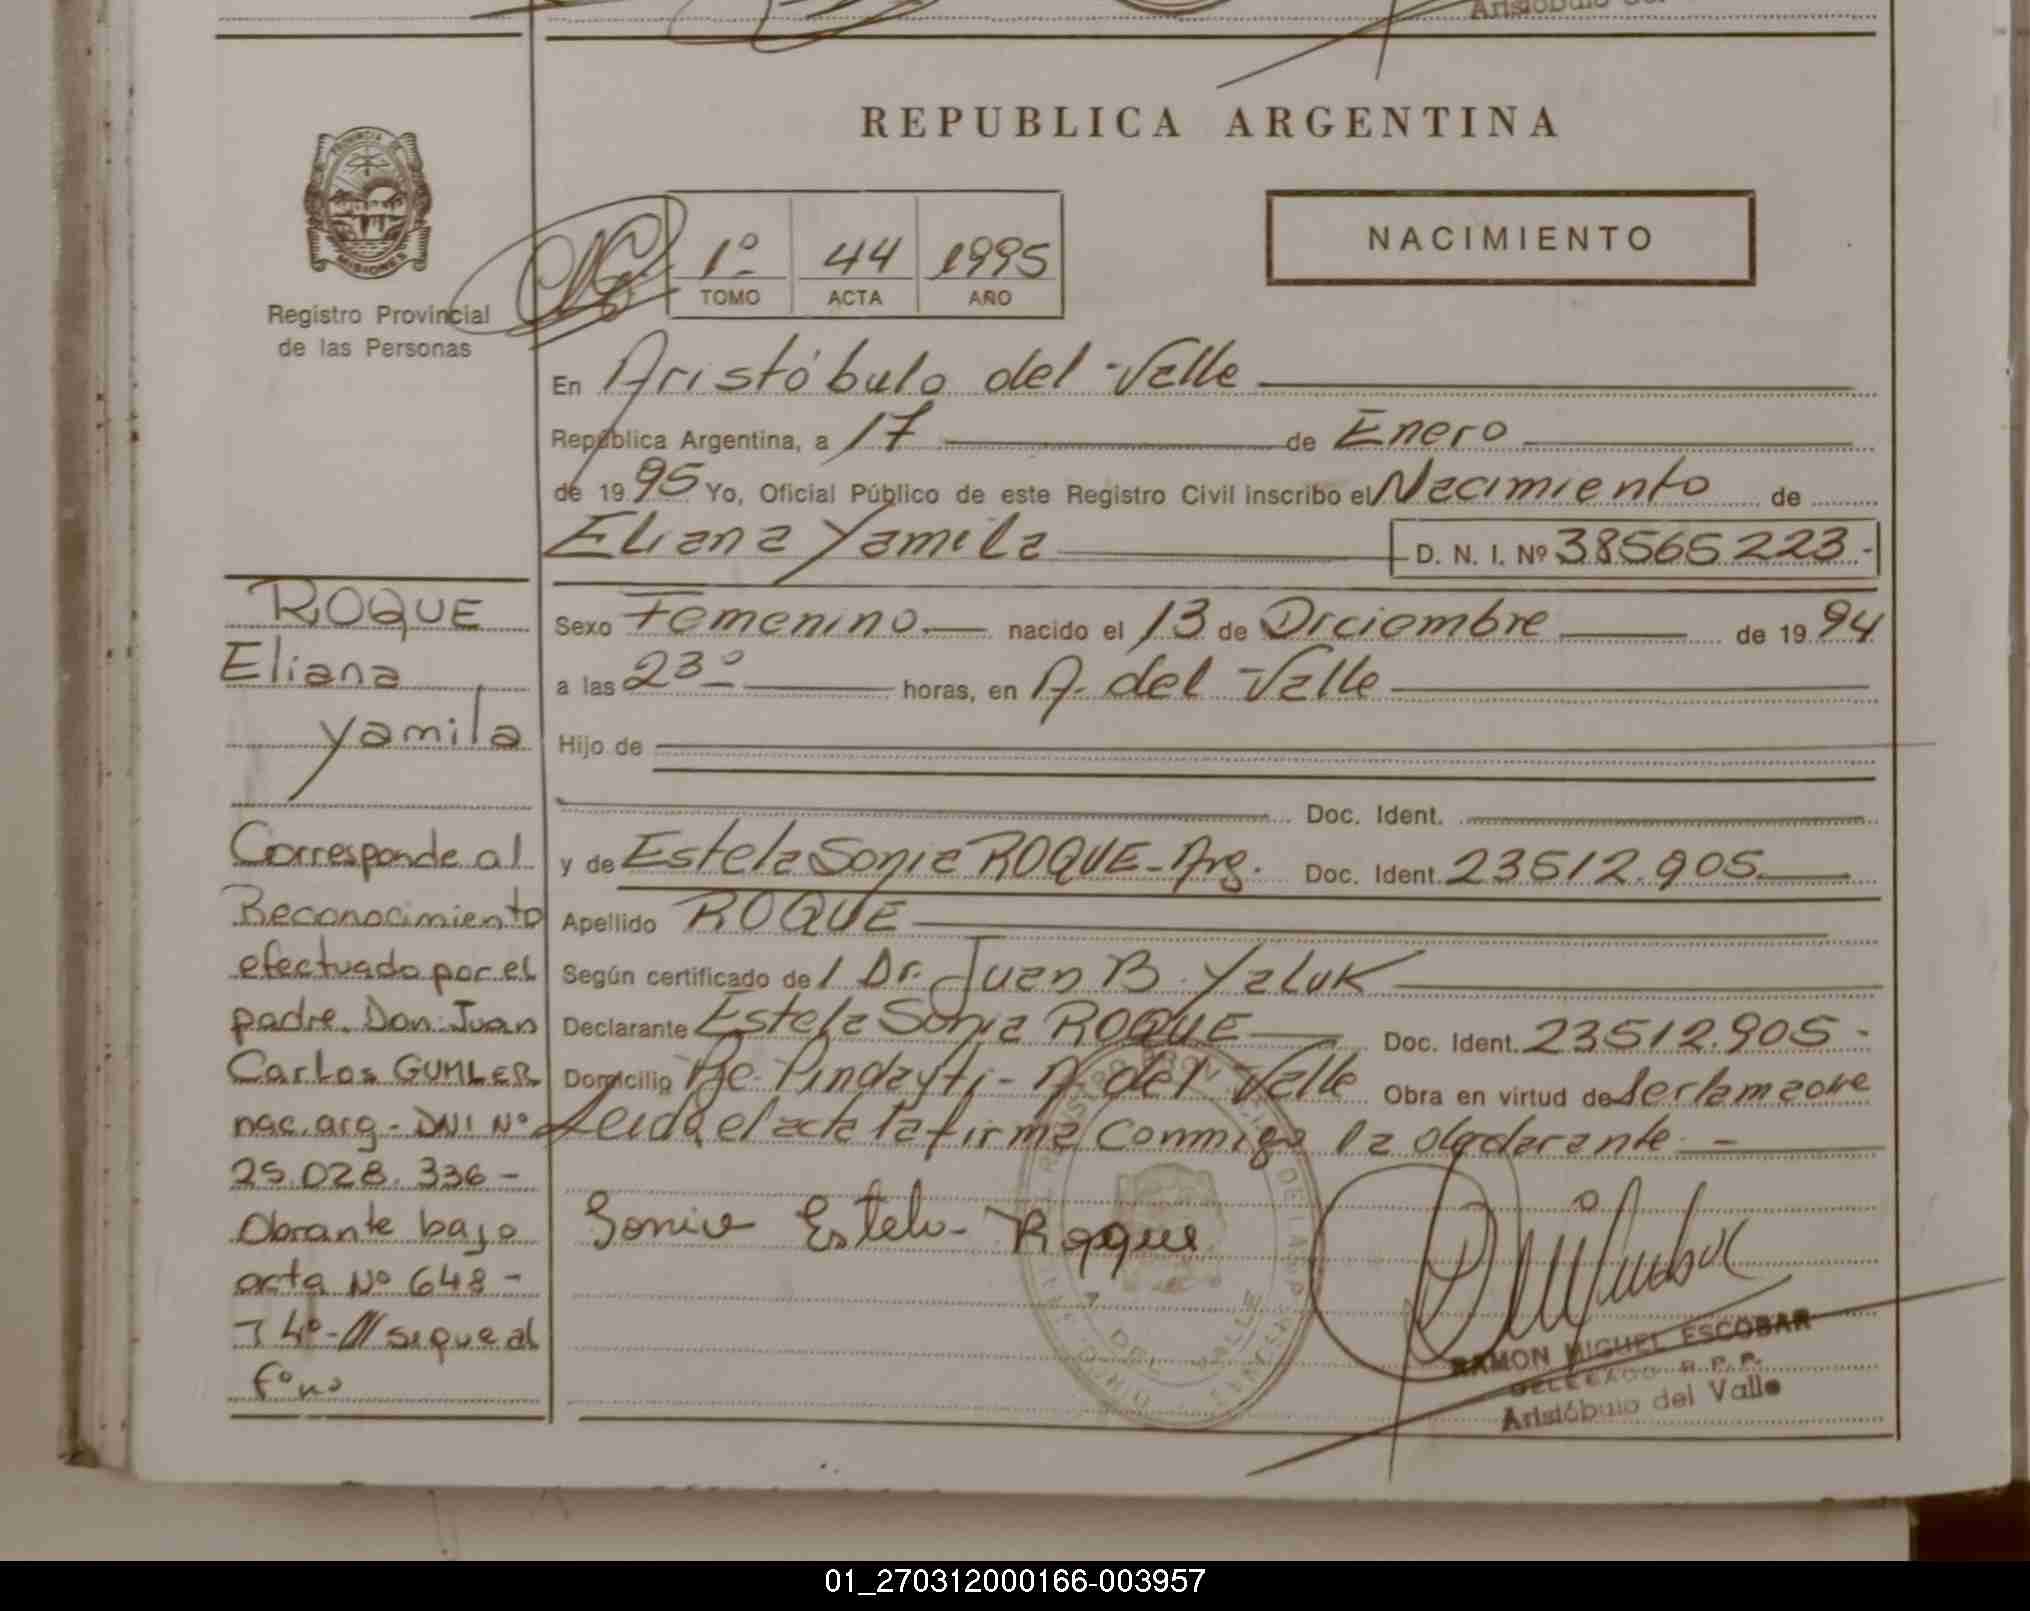 Aristóbulo del
REPUBLICA ARGENTINA
PROVINCIA DE
MISIONES
Registro Provincial
de las Personas
1º 44 1995
TOMO ACTA AÑO
NACIMIENTO
En Aristóbulo del Valle
República Argentina, a 17 de Enero
de 1995 Yo, Oficial Público de este Registro Civil inscribo el Nacimiento de
Eliana Yamila D. N. I. Nº 38565223.-
Sexo Femenino nacido el 13 de Diciembre de 1994
a las 23º horas, en A. del Valle
Hijo de
Doc. Ident.
y de Estela Sonia ROQUE - Arg. Doc. Ident. 23512.905
Apellido ROQUE
Según certificado de / Dr. Juan B. Yaluk
Declarante Estela Sonia ROQUE Doc. Ident. 23512.905-
Domicilio Pje. Pindayti - A. del Valle Obra en virtud de ser la madre
Leida el acta la firma conmigo la declarante.-
Sonia Estela Roque
RAMON MIGUEL ESCOBAR
DELEGADO R. P. P.
Aristóbulo del Valle
DEL VALLE
ROQUE
Eliana
Yamila
Corresponde al
Reconocimiento
efectuado por el
padre. Don Juan
Carlos GUMLER
nac. arg - DNI Nº
25.028.336 -
Obrante bajo
acta Nº 648 -
T 4º - /// sigue al
01_270312000166-003957